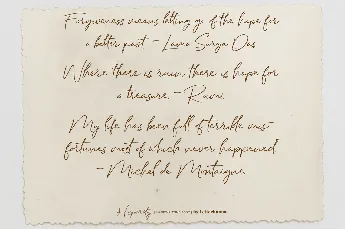 Forgiveness means letting go of the hope for
a better past – Lama Surya Das
Where there is ruin, there is hope for
a treasure. – Rumi
My life has been full of terrible mis-
fortunes most of which never happened
– Michel de Montaigne